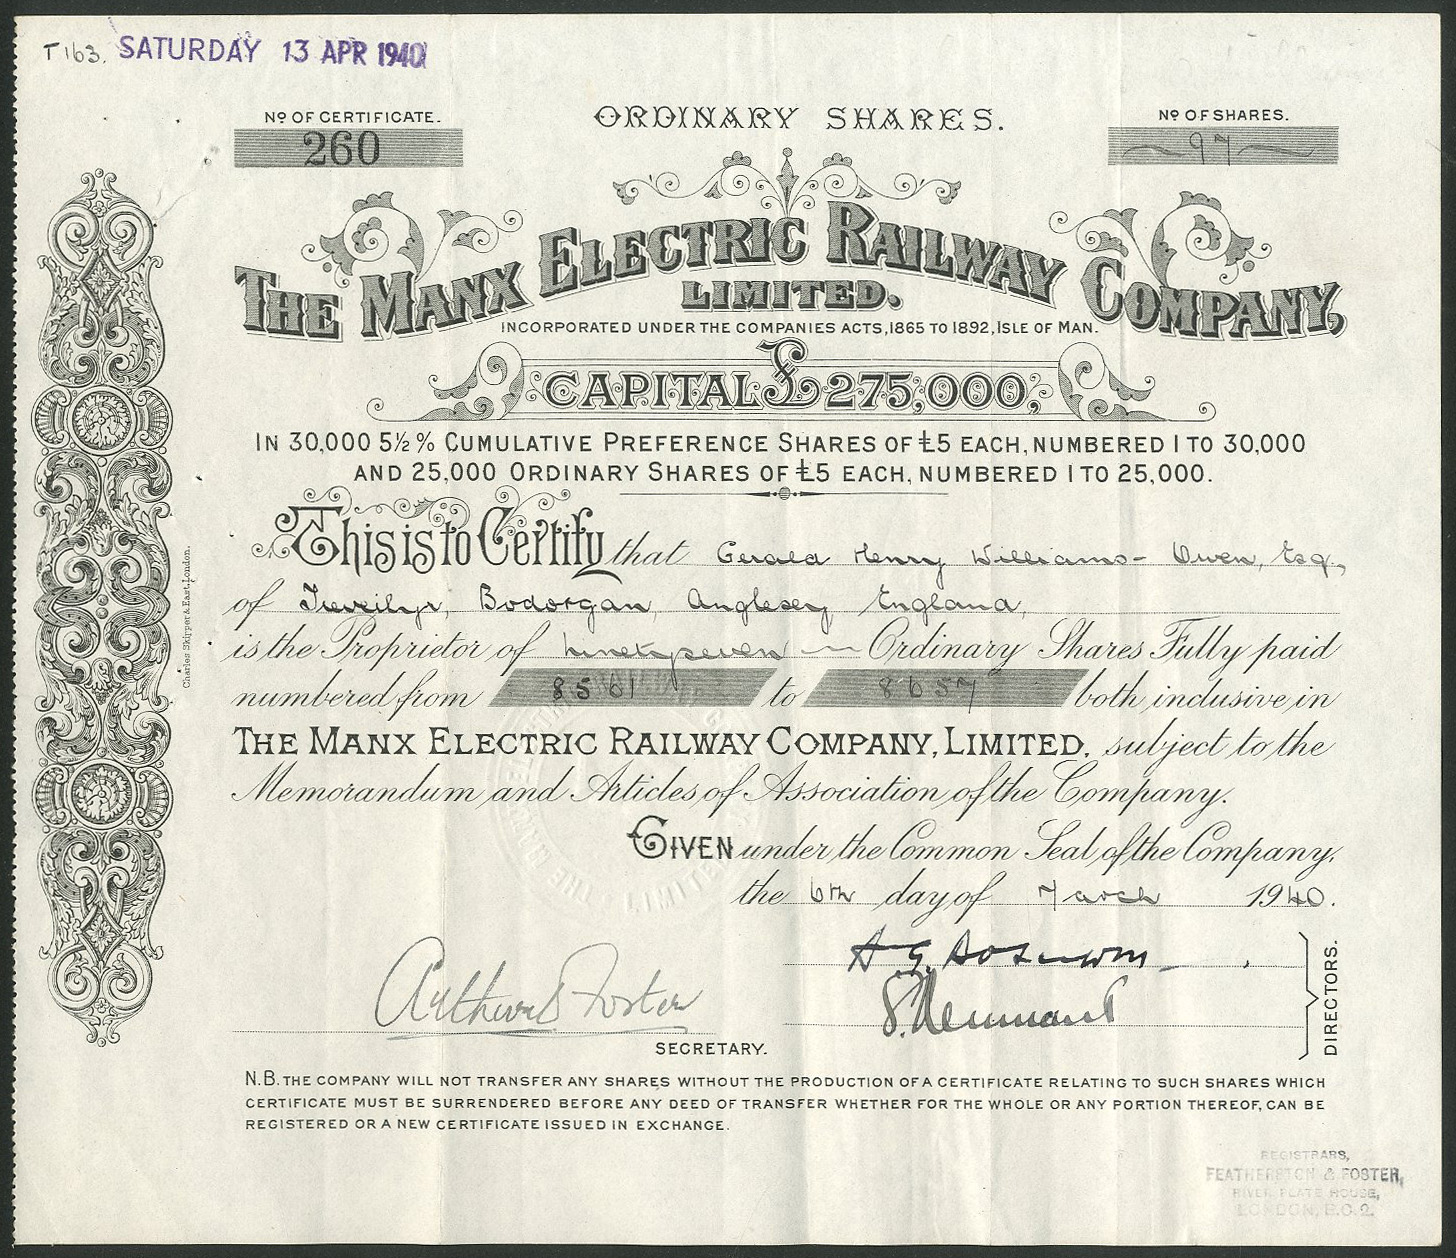 T163. SATURDAY 13 APR 1940
No OF CERTIFICATE.
260
ORDINARY SHARES.
No OF SHARES.
97
THE MANX ELECTRIC RAILWAY COMPANY,
LIMITED.
INCORPORATED UNDER THE COMPANIES ACTS, 1865 TO 1892, ISLE OF MAN.
CAPITAL £275,000,
IN 30,000 5½% CUMULATIVE PREFERENCE SHARES OF £5 EACH, NUMBERED 1 TO 30,000
AND 25,000 ORDINARY SHARES OF £5 EACH, NUMBERED 1 TO 25,000.
This is to Certify that Gerald Henry Williams-Owen, Esq.,
of Treveilyr, Bodorgan, Anglesey, England,
is the Proprietor of ninetyseven Ordinary Shares Fully paid
numbered from 8561 to 8657 both inclusive in
THE MANX ELECTRIC RAILWAY COMPANY, LIMITED, subject to the
Memorandum and Articles of Association of the Company.
GIVEN under the Common Seal of the Company,
the 6th day of March 1940.
Arthur S Foster
SECRETARY.
DIRECTORS.
N.B. THE COMPANY WILL NOT TRANSFER ANY SHARES WITHOUT THE PRODUCTION OF A CERTIFICATE RELATING TO SUCH SHARES WHICH
CERTIFICATE MUST BE SURRENDERED BEFORE ANY DEED OF TRANSFER WHETHER FOR THE WHOLE OR ANY PORTION THEREOF, CAN BE
REGISTERED OR A NEW CERTIFICATE ISSUED IN EXCHANGE.
REGISTRARS,
FEATHERSTON & FOSTER,
RIVER PLATE HOUSE,
LONDON, E.C.2.
Charles Skipper & East, London.